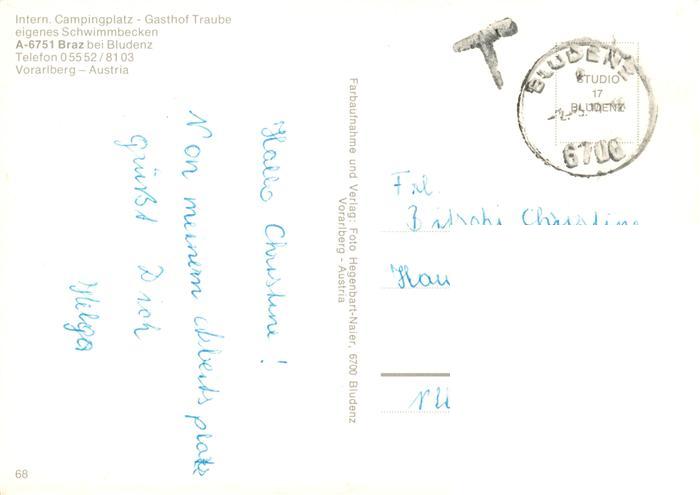 Intern. Campingplatz - Gasthof Traube
eigenes Schwimmbecken
A-6751 Braz bei Bludenz
Telefon 05552/8103
Vorarlberg – Austria
Hallo Christine!
Von meinem Arbeitsplatz
grüßt Dich
Helga
68
Farbaufnahme und Verlag: Foto Hegenbart-Naier, 6700 Bludenz
Vorarlberg - Austria
T
BLUDENZ
6700
STUDIO
17
BLUDENZ
Frl.
Christine